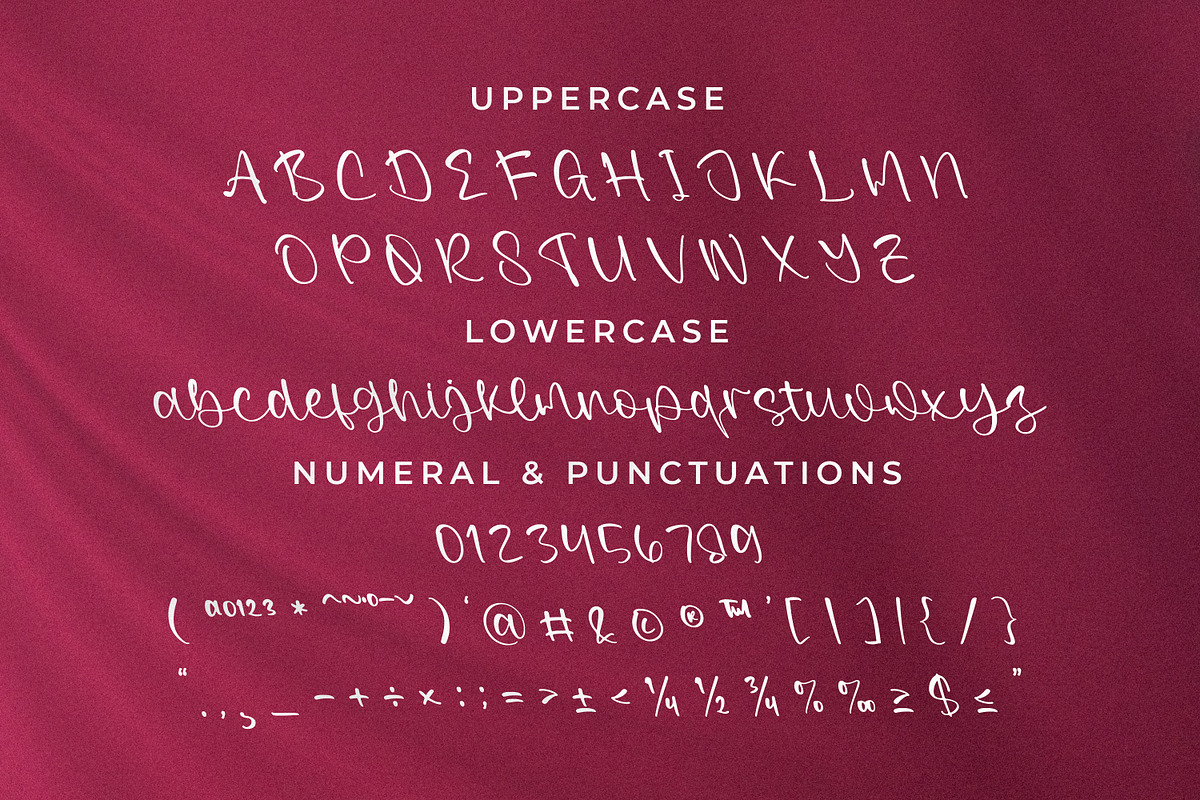 UPPERCASE
ABCDEFGHIJKLMN
OPQRSTUVWXYZ
LOWERCASE
abcdefghijklmnopqrstuvwxyz
NUMERAL & PUNCTUATIONS
0123456789
( a0123 * ) ‘ @ # & © ® ™ ’ [ \ ] | { / }
“ . , _ - + ÷ × : ; = > ± < ¼ ½ ¾ % ‰ ≥ $ ≤ ”